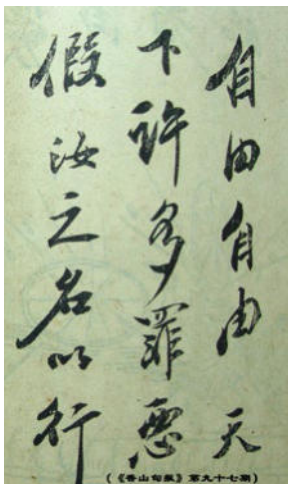 自由自由天
下许多罪恶
假汝之名以行
(《香山旬报》第九十七期)